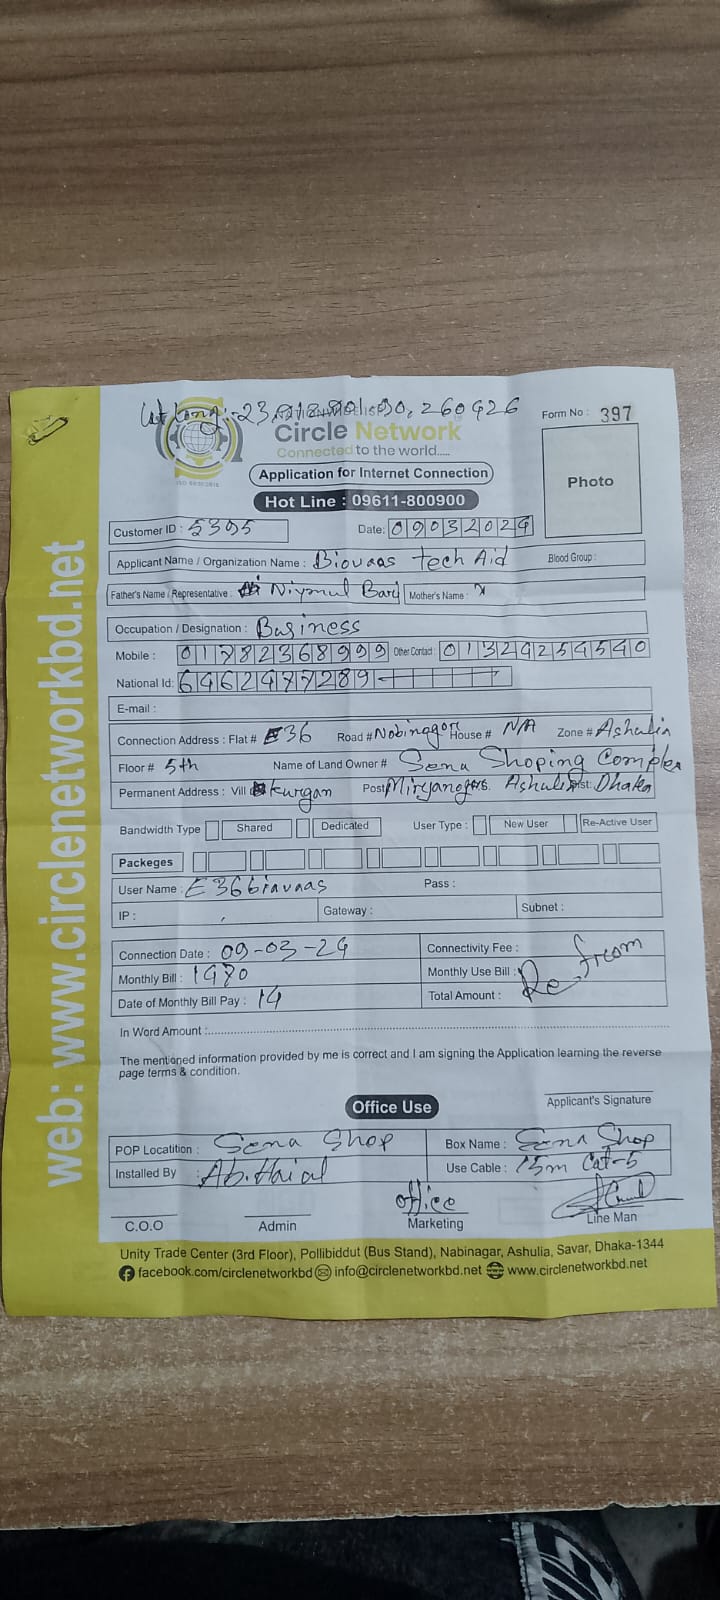 Lat Long:-23.912901.90,260426
NATIONWIDE ISP
Form No : 397
Circle Network
Connected to the world.....
ISO 9001:2015
Application for Internet Connection
Photo
Hot Line : 09611-800900
Customer ID : 5395 Date: 09032024
Applicant Name / Organization Name : Biovaas tech Aid Blood Group :
Father's Name / Representative : Niymul Bari Mother's Name : x
Occupation / Designation : Business
Mobile : 01782368999 Other Contact : 01324254540
National Id: 6462477289
E-mail :
Connection Address : Flat # E36 Road # Nobinagor House # N/A Zone # Ashulia
Floor # 5th Name of Land Owner # Sena Shoping Complex
Permanent Address : Vill kurgan Post Miryanagar P.S. Ashulia Dist: Dhaka
Bandwidth Type Shared Dedicated User Type : New User Re-Active User
Packeges
User Name : E36biavaas Pass :
IP : Gateway : Subnet :
Connection Date : 09-03-24 Connectivity Fee :
Monthly Bill : 1470 Monthly Use Bill : Re from
Date of Monthly Bill Pay : 14 Total Amount :
In Word Amount :
The mentioned information provided by me is correct and I am signing the Application learning the reverse
page terms & condition.
Applicant's Signature
Office Use
POP Locatition : Sena Shop Box Name : Sena Shop
Installed By : Ab. Hai al Use Cable : 15m Cat-5
office
C.O.O Admin Marketing Line Man
Unity Trade Center (3rd Floor), Pollibiddut (Bus Stand), Nabinagar, Ashulia, Savar, Dhaka-1344
facebook.com/circlenetworkbd info@circlenetworkbd.net www.circlenetworkbd.net
web: www.circlenetworkbd.net